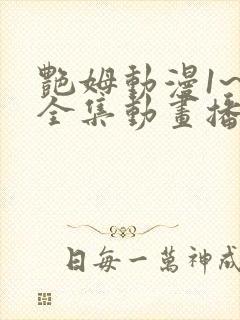 艷姆動漫1~
全集動畫播
日每一萬神成